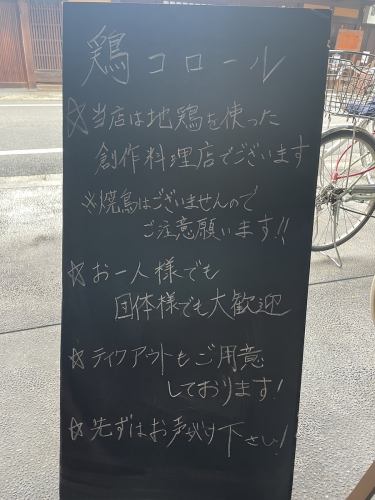 鶏コロール
☆当店は地鶏を使った
創作料理店でございます
※焼鳥はございませんので
ご注意願います!!
☆お一人様でも
団体様でも大歓迎
☆テイクアウトもご用意
しております!
☆先ずはお声がけ下さい!